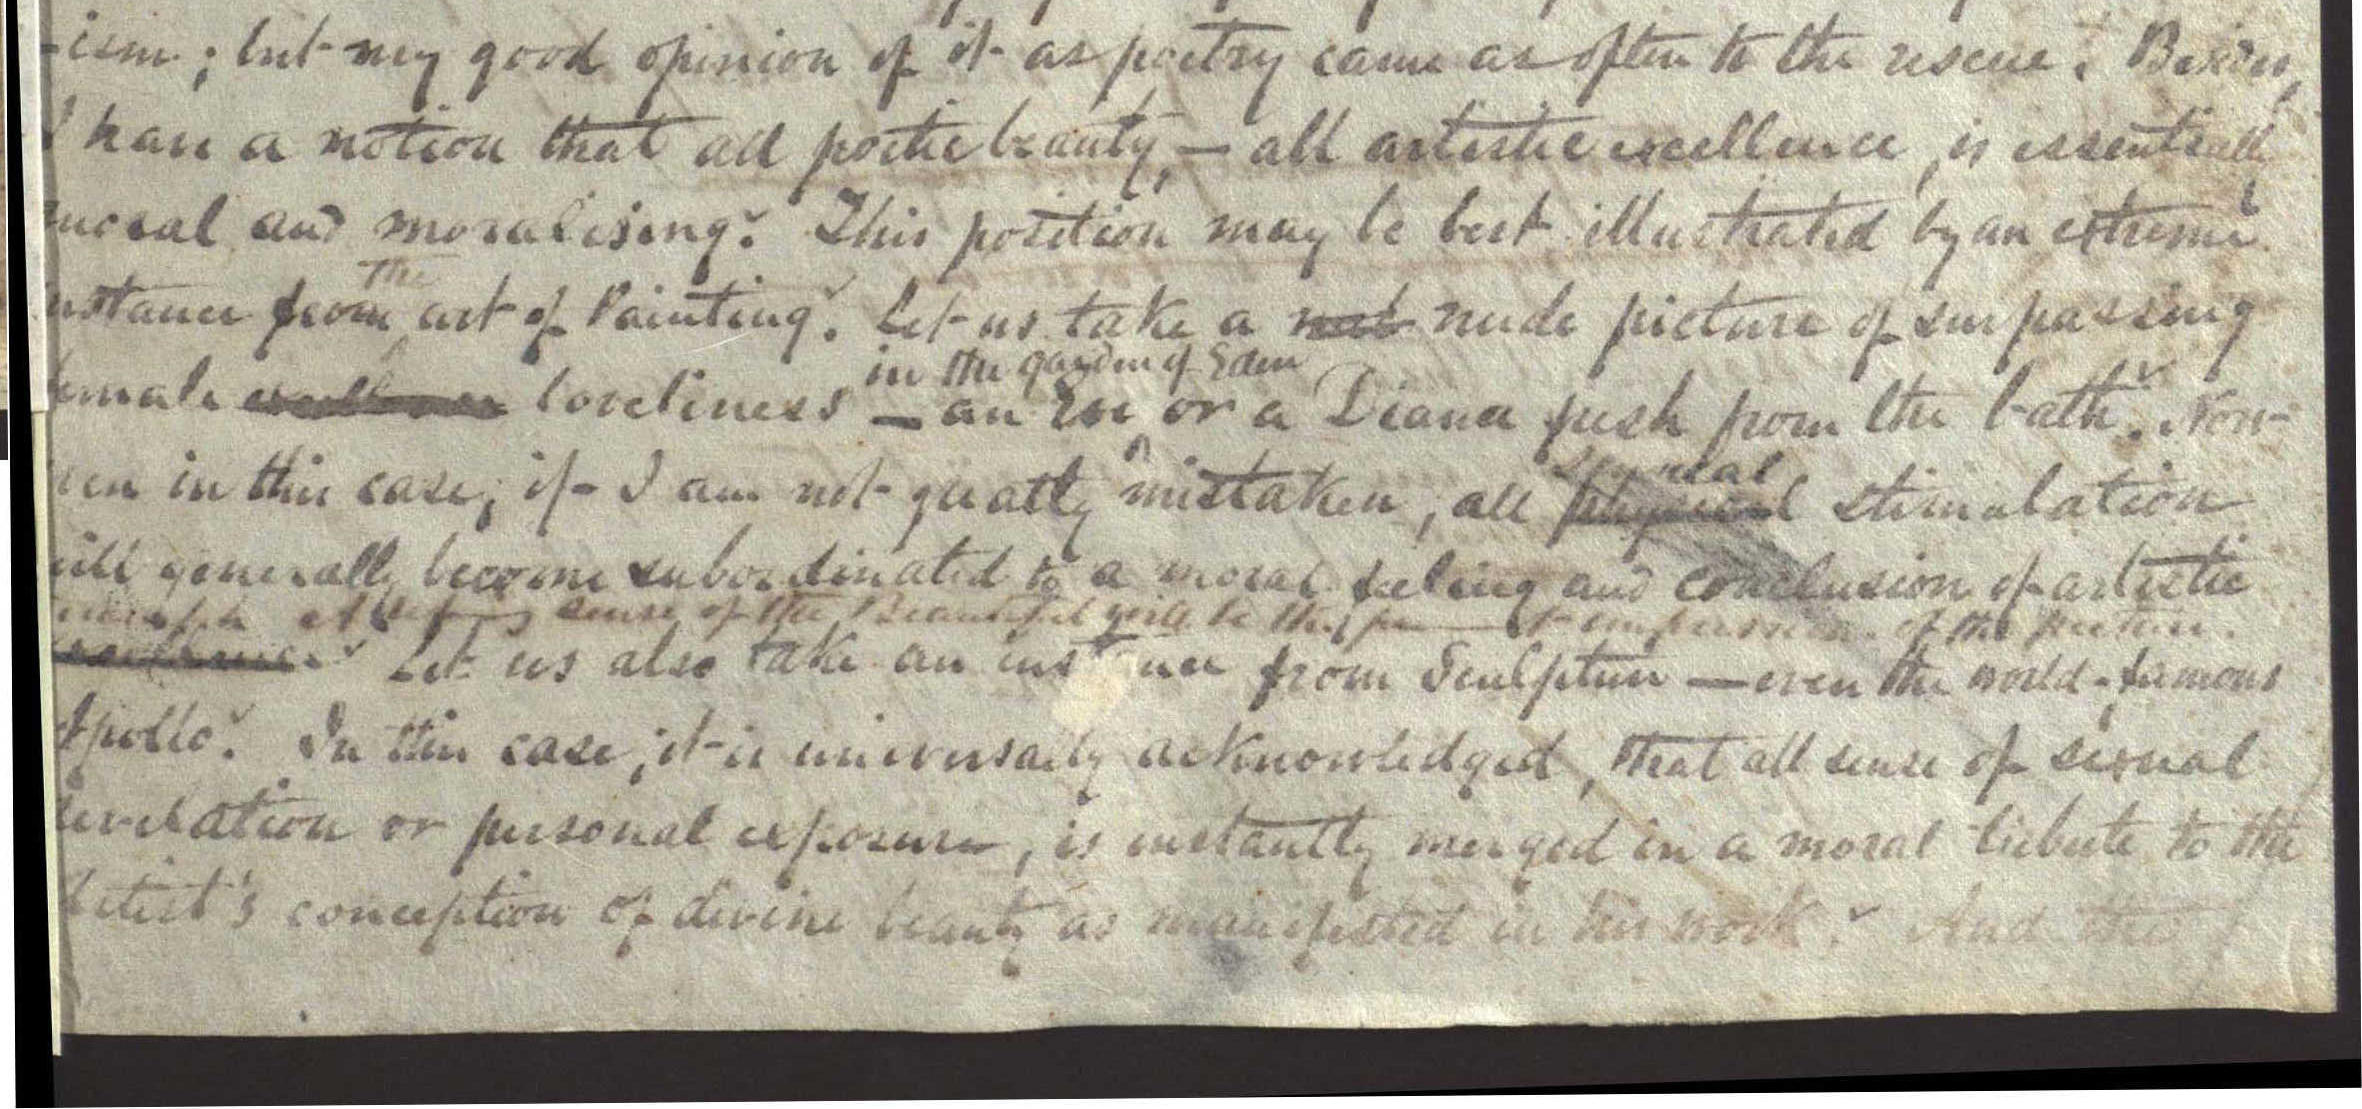 -ism; but my good opinion of it as poetry came as often to the rescue. Besides,
I have a notion that all poetic beauty, — all artistic excellence, is essentially
moral and moralising. This position may be best illustrated by an extreme
the
instance from art of Painting. Let us take a nude picture of surpassing
in the garden of Eden
female loveliness — an Eve or a Diana fresh from the bath. Now
even in this case, if I am not greatly mistaken, all physical stimulation
will generally become subordinated to a moral feeling and conclusion of artistic
sense of the Beautiful will be the of the picture.
Let us also take an instance from Sculpture — even the world-famous
Apollo. In this case, it is universally acknowledged, that all sense of sexual
revelation or personal exposure, is instantly merged in a moral tribute to the
Artist's conception of divine beauty as manifested in his work. And the